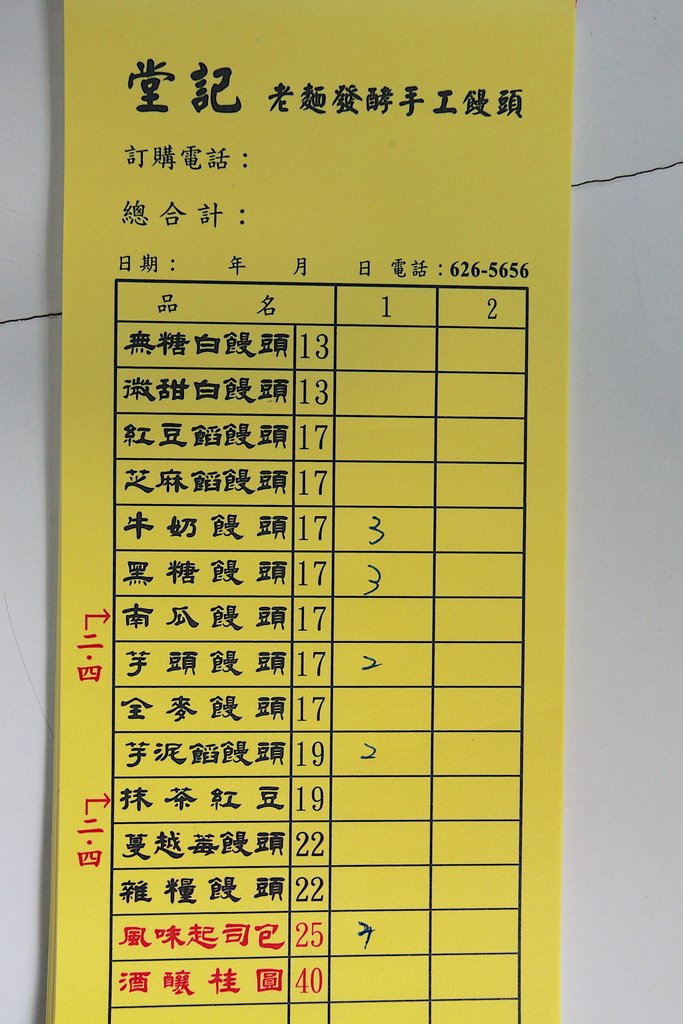 堂記 老麵發酵手工饅頭
訂購電話：
總合計：
日期： 年 月 日 電話：626-5656
品名 1 2
無糖白饅頭 13
微甜白饅頭 13
紅豆餡饅頭 17
芝麻餡饅頭 17
牛奶饅頭 17 3
黑糖饅頭 17 3
二·四 南瓜饅頭 17
芋頭饅頭 17 2
全麥饅頭 17
芋泥餡饅頭 19 2
二·四 抹茶紅豆 19
蔓越莓饅頭 22
雜糧饅頭 22
風味起司包 25
酒釀桂圓 40